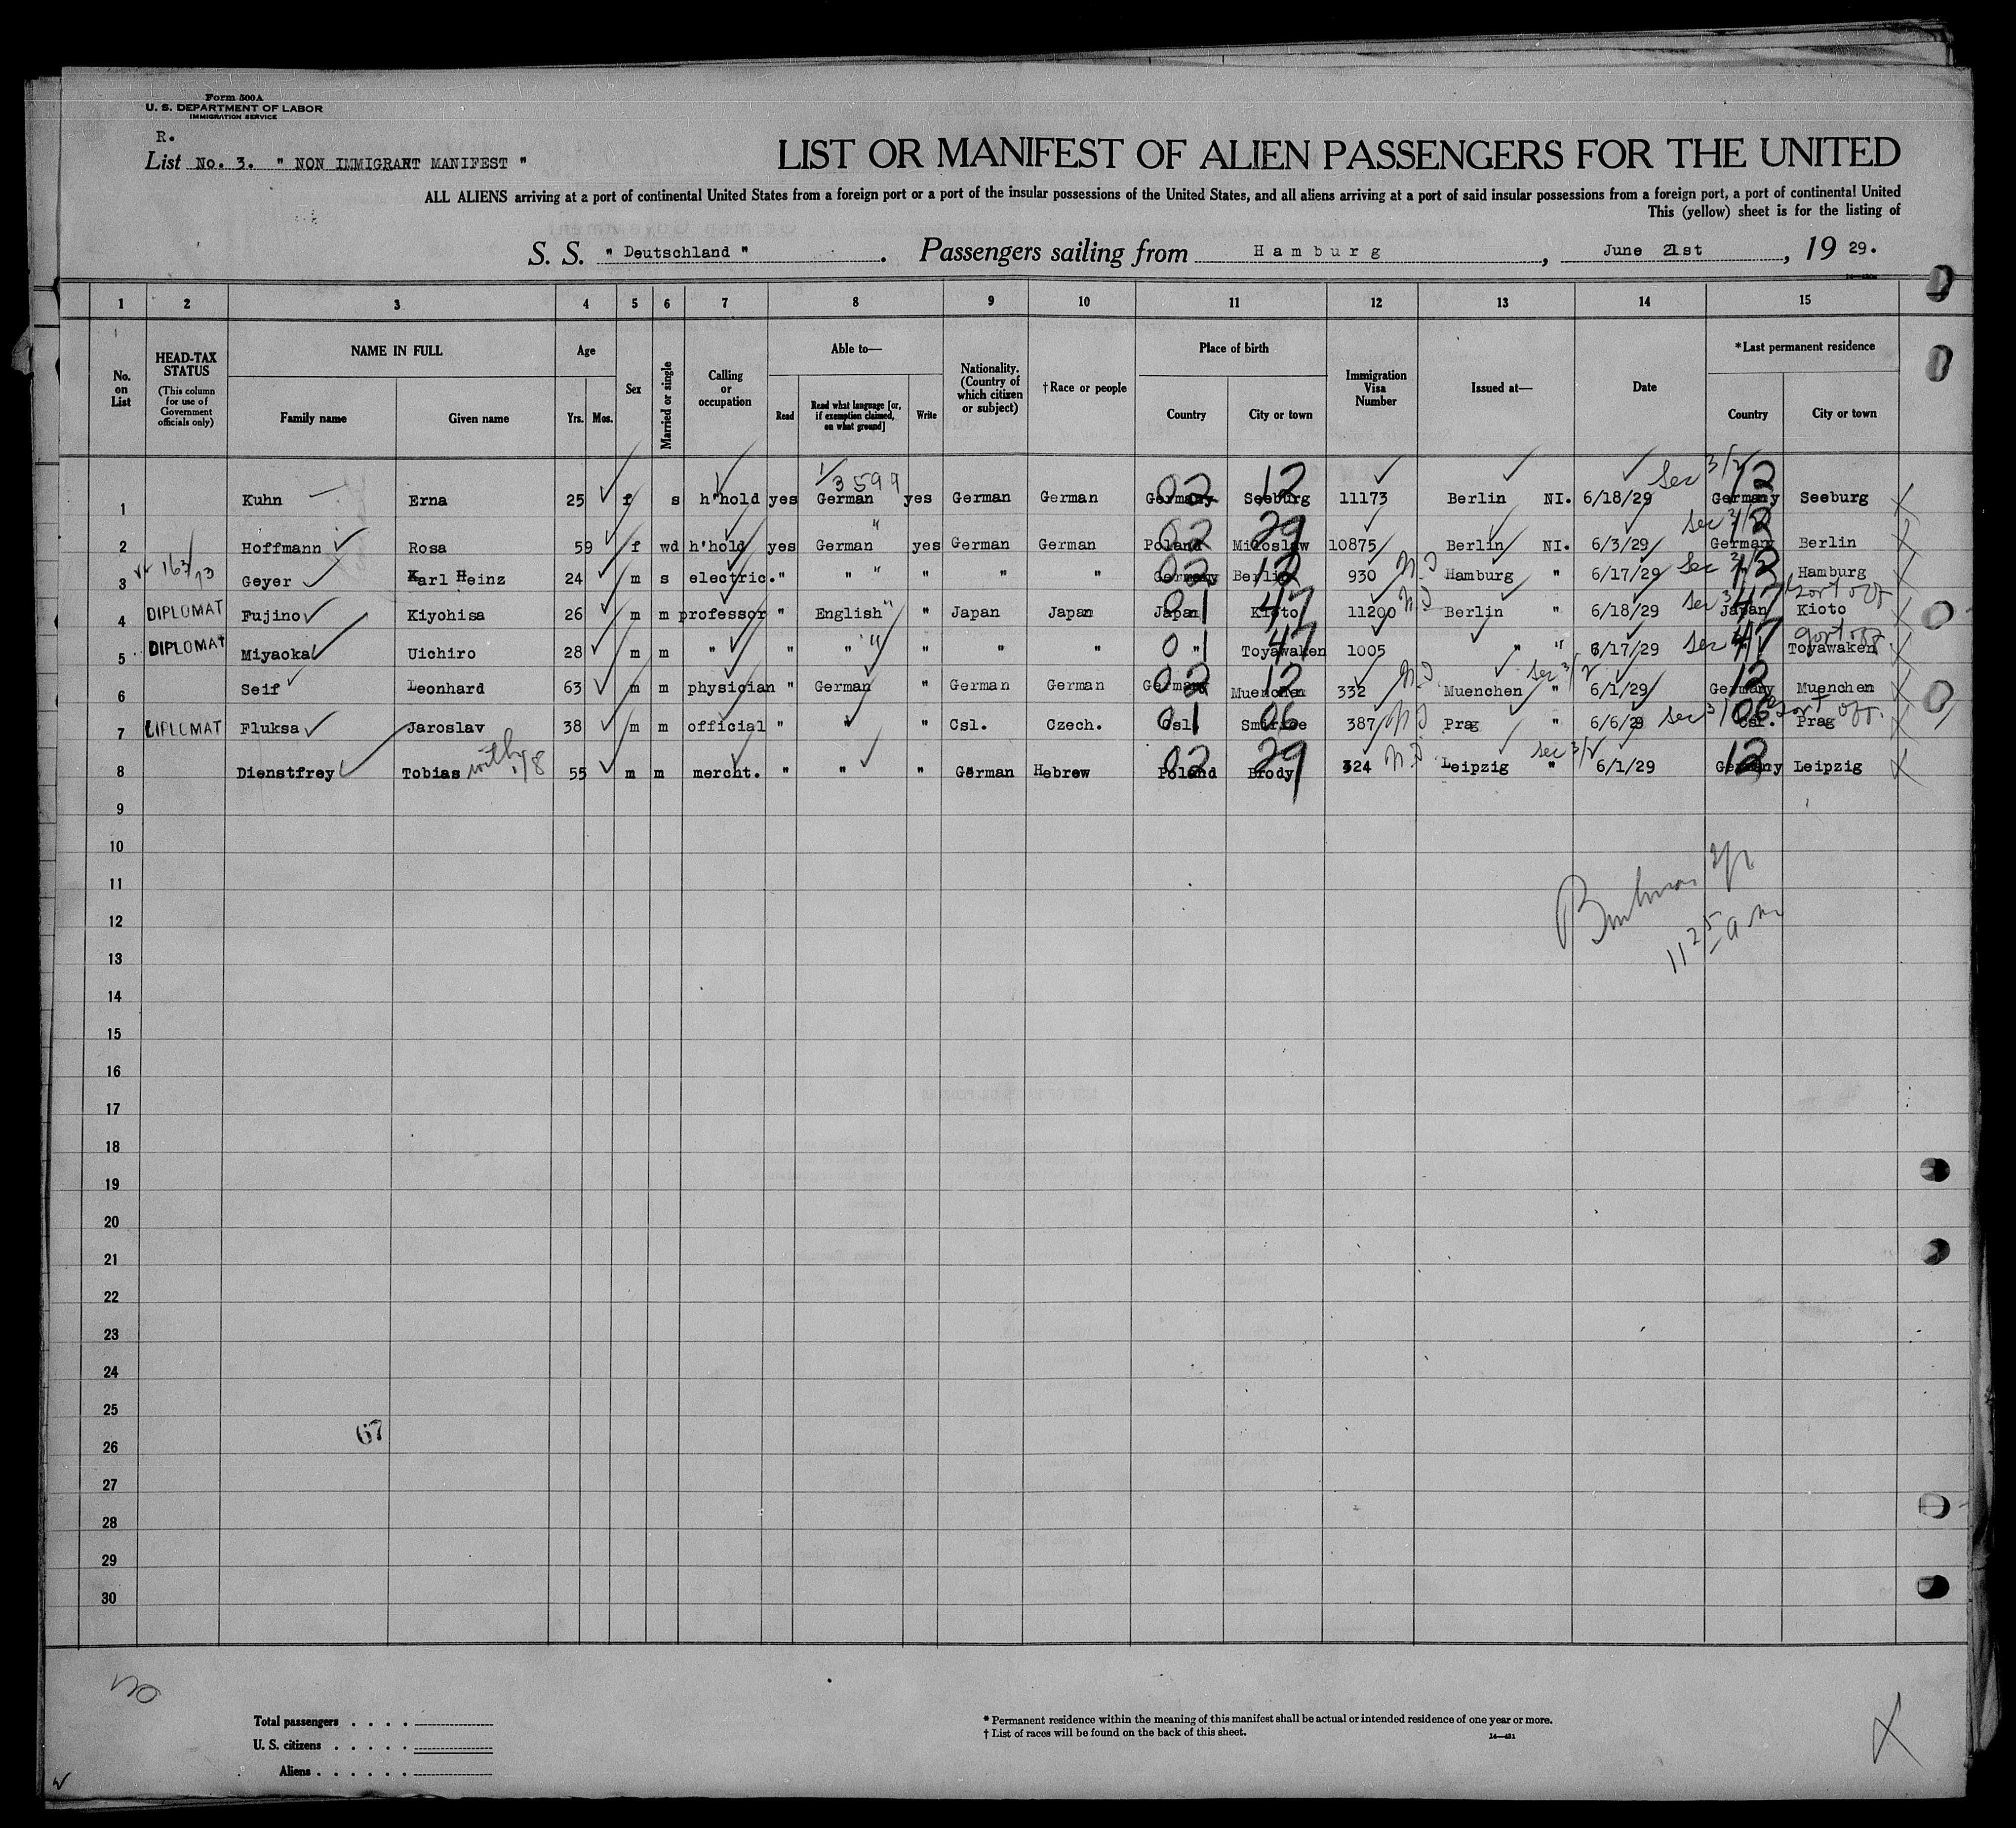 Form 500 A
U. S. DEPARTMENT OF LABOR
IMMIGRATION SERVICE
R.
List No. 3. " NON IMMIGRART MANIFEST "
LIST OR MANIFEST OF ALIEN PASSENGERS FOR THE UNITED
ALL ALIENS arriving at a port of continental United States from a foreign port or a port of the insular possessions of the United States, and all aliens arriving at a port of said insular possessions from a foreign port, a port of continental United
This (yellow) sheet is for the listing of
S. S. " Deutschland ". Passengers sailing from Hamburg, June 21st, 19 29.
1 2 3 4 5 6 7 8 9 10 11 12 13 14 15
No. on List
HEAD-TAX STATUS (This column for use of Government officials only)
NAME IN FULL Family name Given name
Age Yrs. Mos.
Sex
Married or single
Calling or occupation
Able to— Read Read what language [or, if exemption claimed, on what ground] Write
Nationality. (Country of which citizen or subject)
† Race or people
Place of birth Country City or town
Immigration Visa Number
Issued at—
Date
*Last permanent residence Country City or town
3599 sec 3/2
1 Kuhn Erna 25 f s h'hold yes German yes German German Germany 02 Seeburg 12 11173 Berlin NI. 6/18/29 Germany 12 Seeburg
2 Hoffmann Rosa 59 f wd h'hold yes German " yes German German Poland 02 Miloslaw 29 10875 Berlin NI. 6/3/29 sec 3/2 Germany 12 Berlin
3 163/13 Geyer Karl Heinz 24 m s electric. " " " " " " Germany 02 Berlin 12 930 Hamburg " 6/17/29 sec 3/2 12 Hamburg
4 DIPLOMAT Fujino Kiyohisa 26 m m professor " English " " Japan Japan Japan 01 Kioto 47 11200 Berlin " 6/18/29 sec Japan 47 Kioto
5 DIPLOMAT Miyaoka Uichiro 28 m m " " " " " " " " 01 Toyawaken 47 1005 " " 6/17/29 sec 47 Toyawaken
6 Seif Leonhard 63 m m physician " German " German German Germany 02 Muenchen 12 332 Muenchen " sec 3/2 6/1/29 Germany 12 Muenchen
7 DIPLOMAT Fluksa Jaroslav 38 m m official " " " Csl. Czech. Csl 01 06 387 Prag " 6/6/29 sec Csr. 06 Prag
8 Dienstfrey Tobias 55 m m mercht. " " " German Hebrew Poland 02 Brody 29 324 Leipzig " sec 3/2 6/1/29 Germany 12 Leipzig
9
10
11
12
11 25 a m
13
14
15
16
17
18
19
20
21
22
23
24
25
67
26
27
28
29
30
Total passengers . . . .
U. S. citizens . . . . .
Aliens . . . . . .
* Permanent residence within the meaning of this manifest shall be actual or intended residence of one year or more.
† List of races will be found on the back of this sheet.
14—431